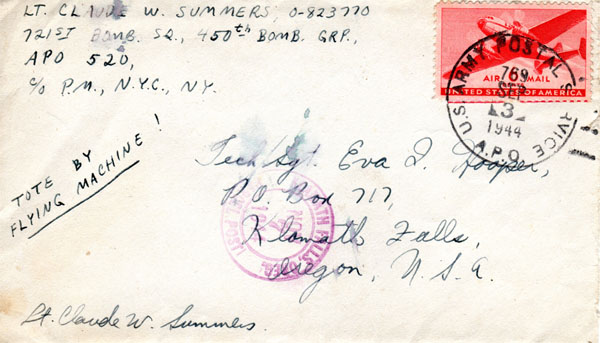 LT. CLAUDE W. SUMMERS, O-823770
721ST BOMB. SQ., 450th BOMB. GRP.,
APO 520,
c/o P.M., N.Y.C., N.Y.
AIR MAIL
UNITED STATES OF AMERICA
U.S. ARMY POSTAL SERVICE
769
SEP
13
1944
A.P.O.
TOTE BY
FLYING MACHINE !
Tech Sgt. Eva I. Hooper,
P.O. Box 717,
Klamath Falls,
Oregon, U.S.A.
KLAMATH FALLS, OREG.
NOV
Lt. Claude W. Summers